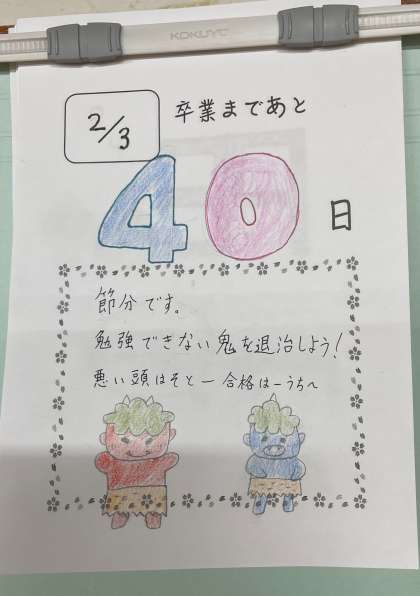 KOKUYO
2/3
卒業まであと
40日
節分です。
勉強できない鬼を退治しよう!
悪い頭はそとー合格はーうちへ